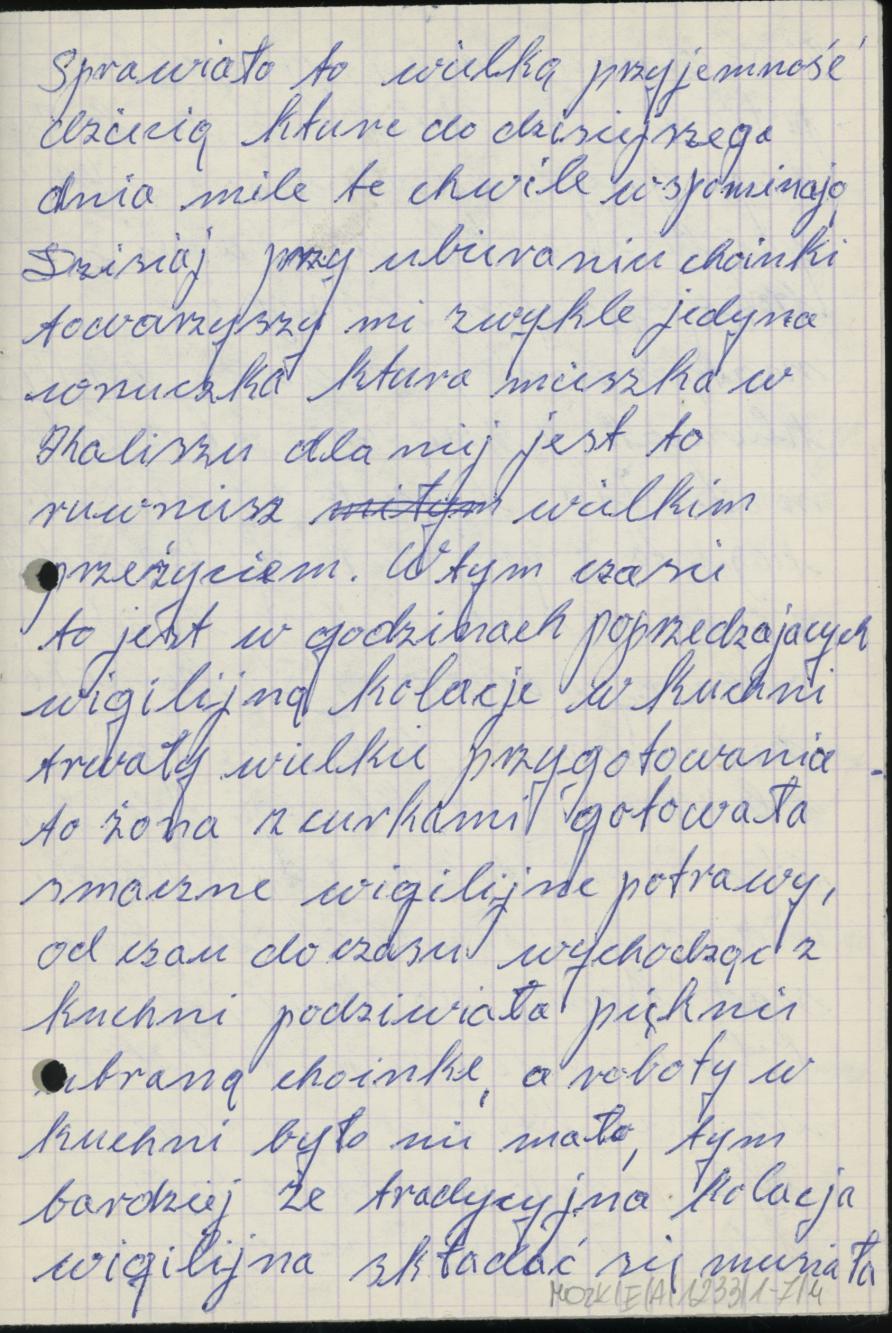 Sprawiało to wielką przyjemność
dziecią kture do dzisiejszego
dnia mile te chwile wspominają
Dzisiaj przy ubieraniu choinki
towarzyszy mi zwykle jedyna
wnuczka ktura mieszka w
Kaliszu dla niej jest to
ruwniesz miłym wielkim
przeżyciem. W tym czasie
to jest w godzinach poprzedzajacych
wigilijną kolacje w kuchni
trwały wielkie przygotowania
to żona z curkami gotowała
smaczne wigilijne potrawy,
od czau do czasu wychodząc z
kuchni podziwiała pięknie
ubraną choinkę, a roboty w
kuchni było nie mało, tym
bardziej że tradycyjna kolacja
wigilijna składać się musiała
MOZK/E/A/1233/1-7/4